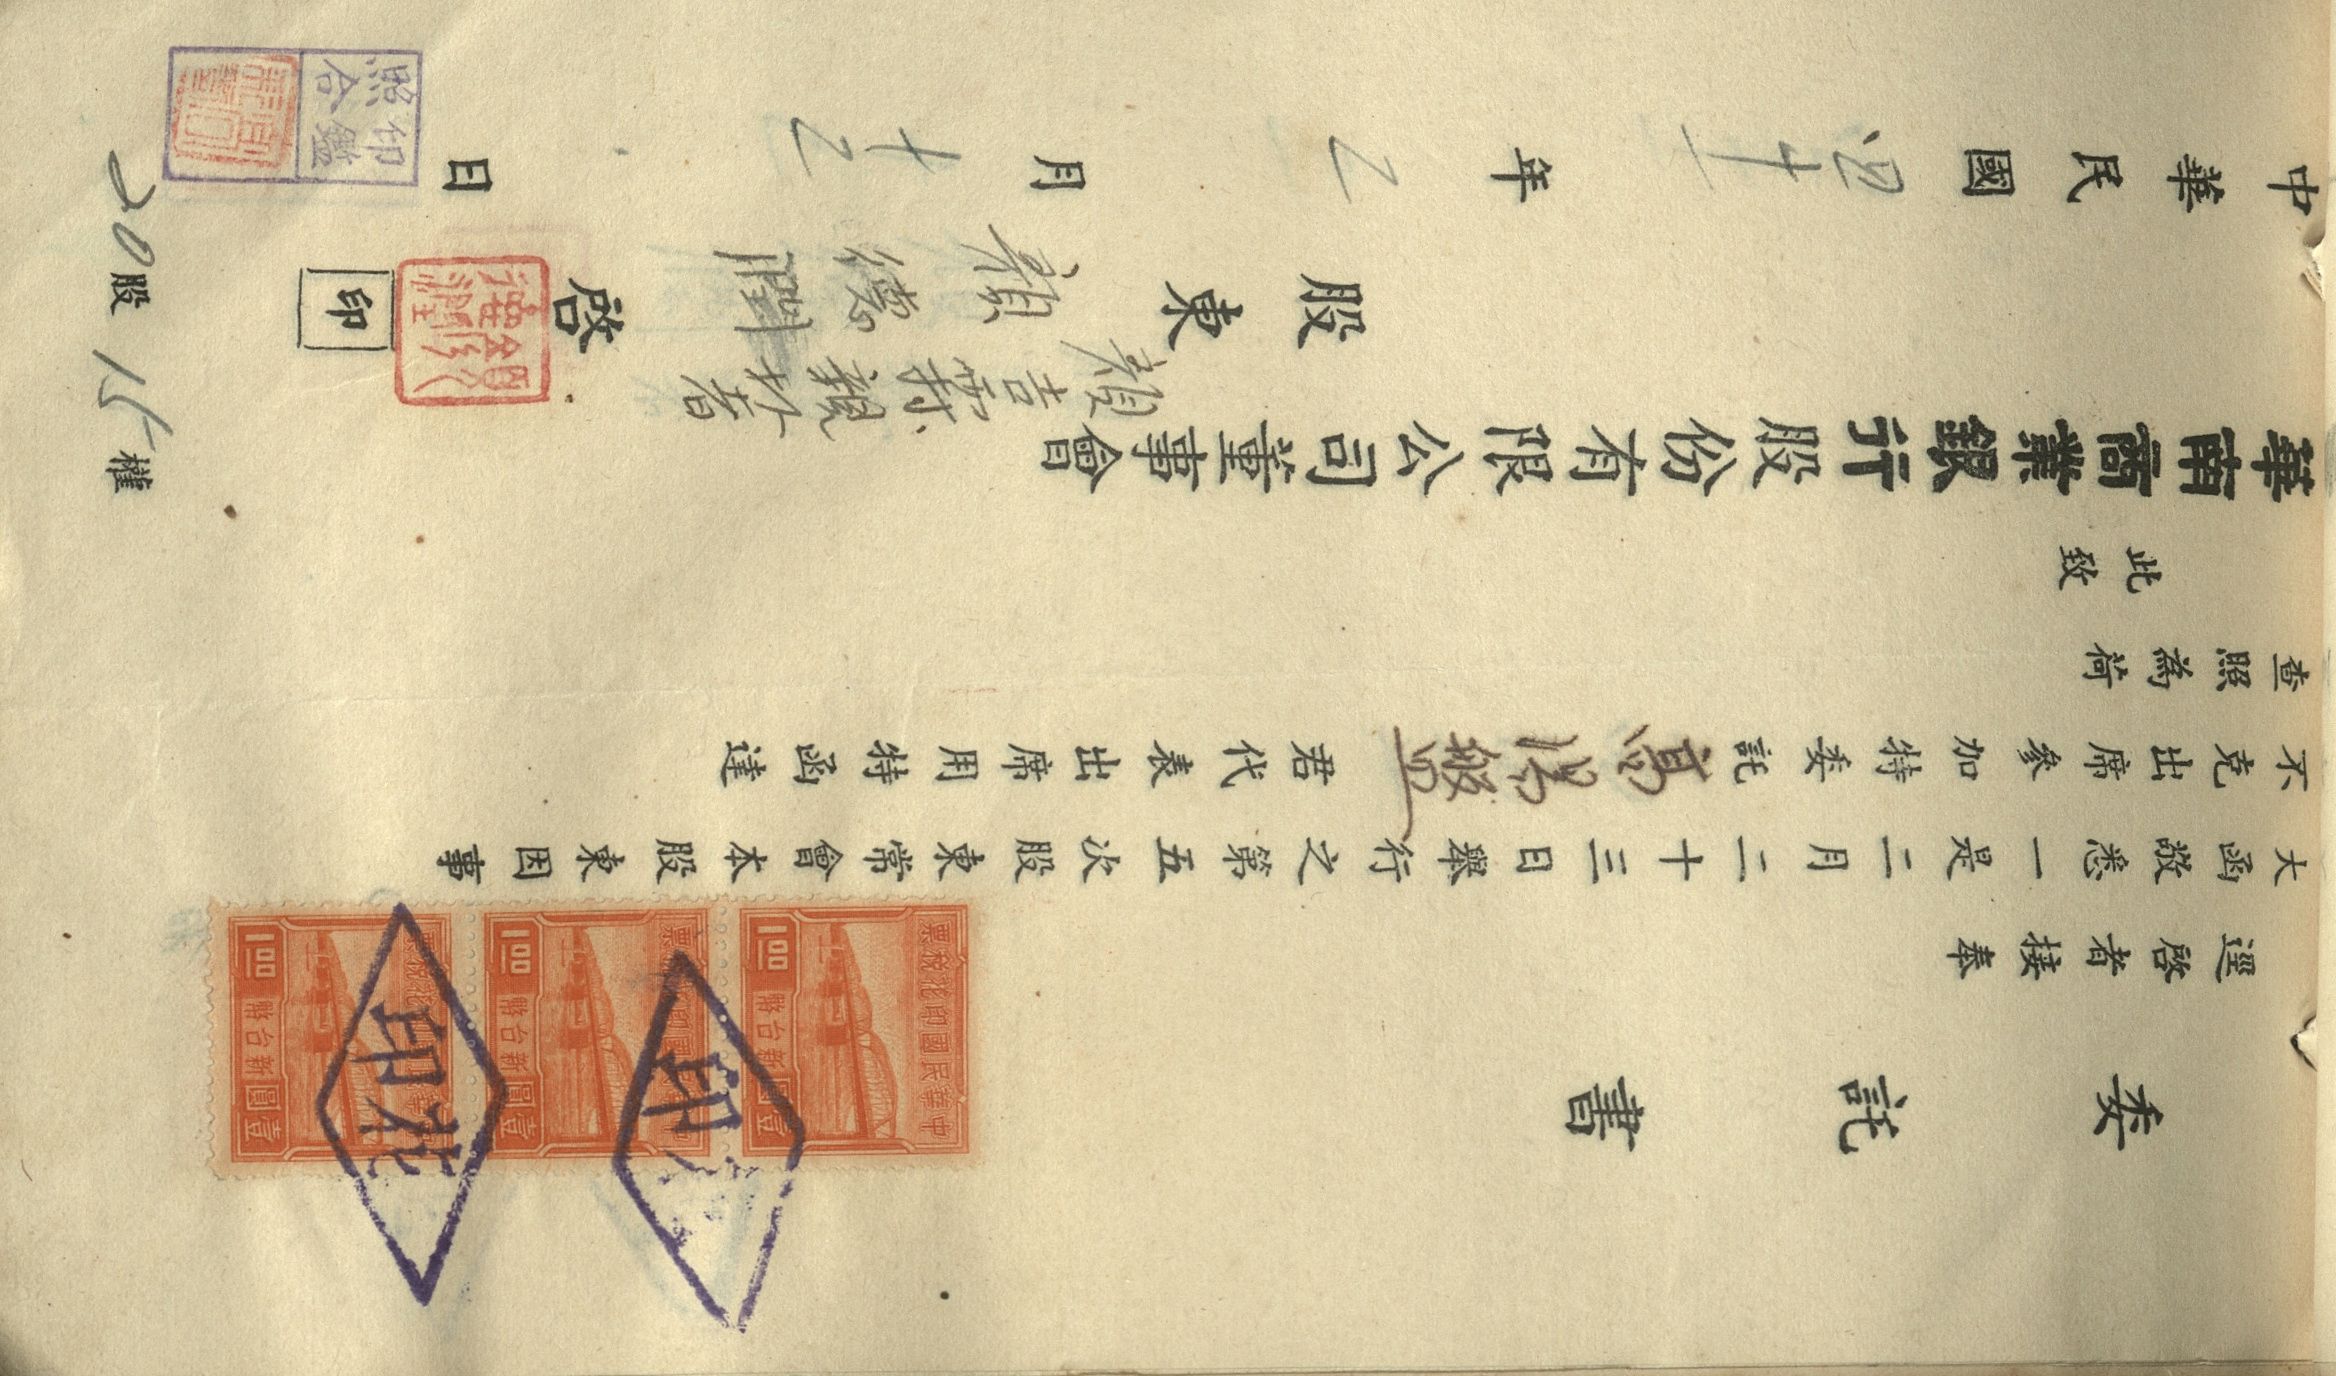 委託書
逕啓者接奉
大函敬悉一是二月二十三日舉行之第五次股東常會本股東因事
不克出席參加特委託高湯盤君代表出席用特函達
查照為荷
此致
華南商業銀行股份有限公司董事會
股東 賴 啓 印
中華民國四十一年乙月十乙日
20股 15權
印鑑
照合
中華民國印花稅票
壹圓
新台幣
1.00
中華民國印花稅票
壹圓
新台幣
1.00
壹圓
新台幣
1.00
印花
印